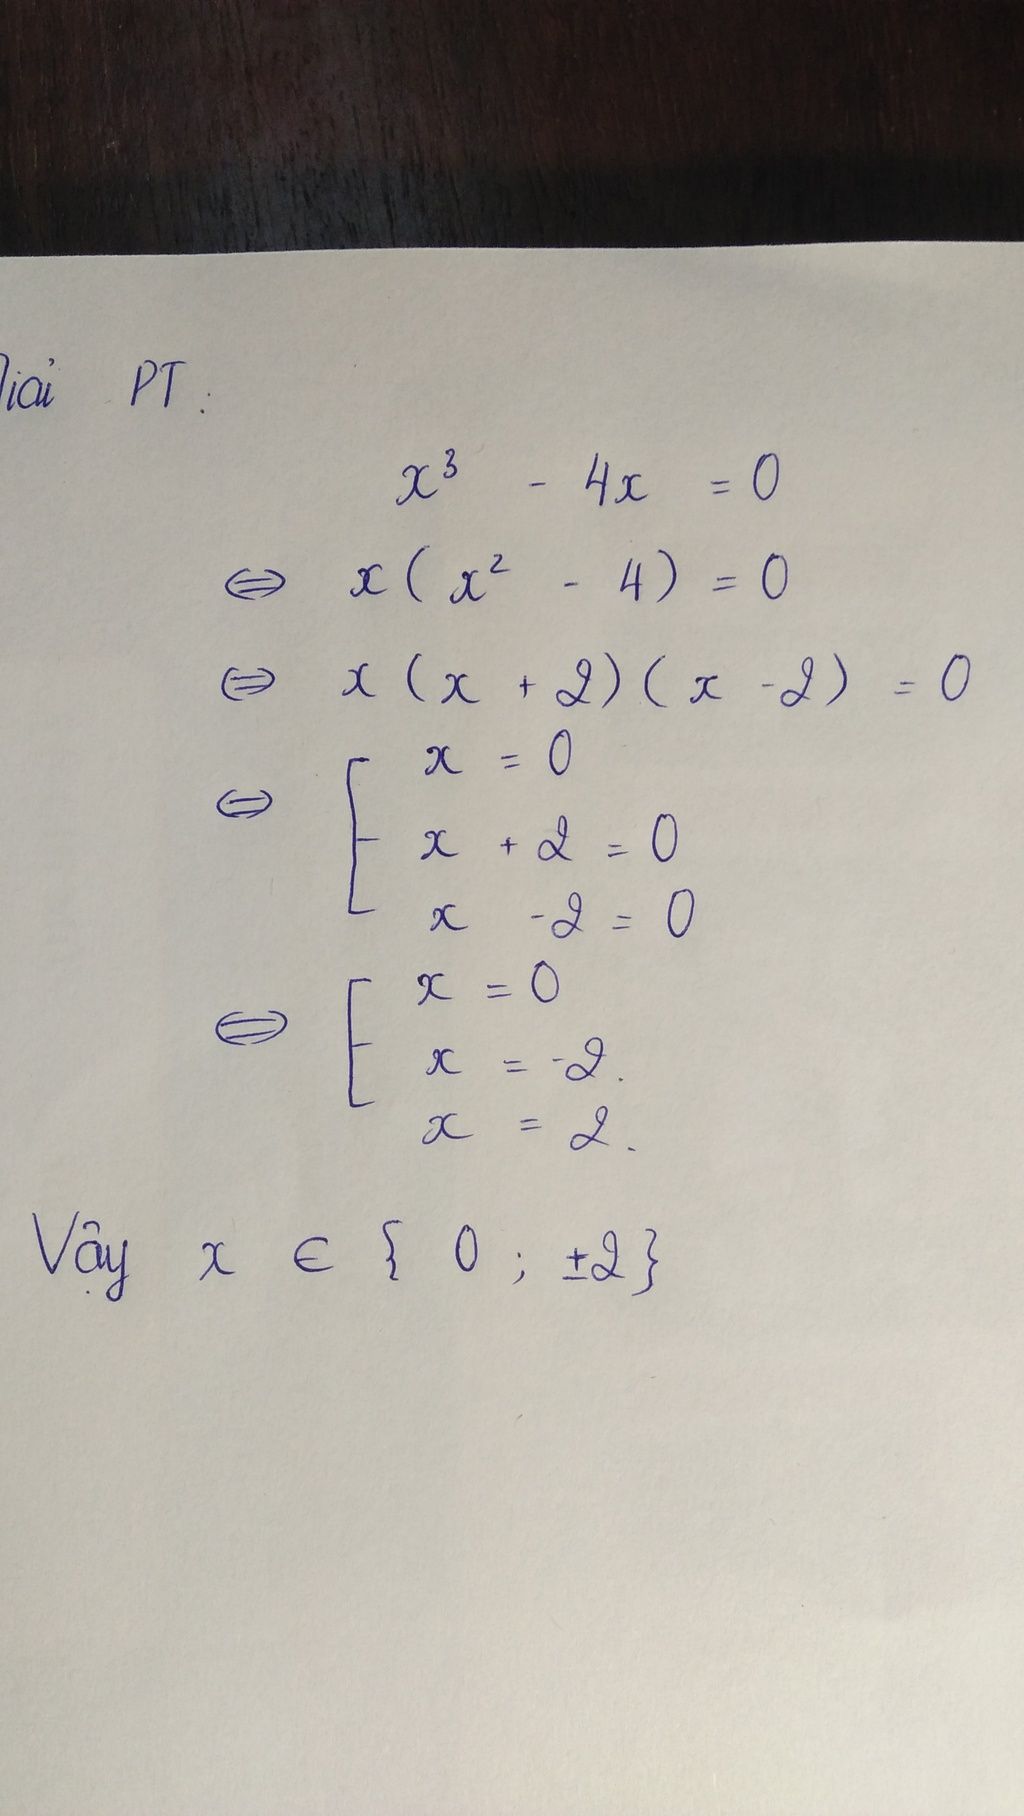 Giải PT:
x³ - 4x = 0
⇔ x(x² - 4) = 0
⇔ x(x + 2)(x - 2) = 0
⇔ [ x = 0
x + 2 = 0
x - 2 = 0
⇔ [ x = 0
x = -2.
x = 2.
Vậy x ∈ { 0 ; ±2}